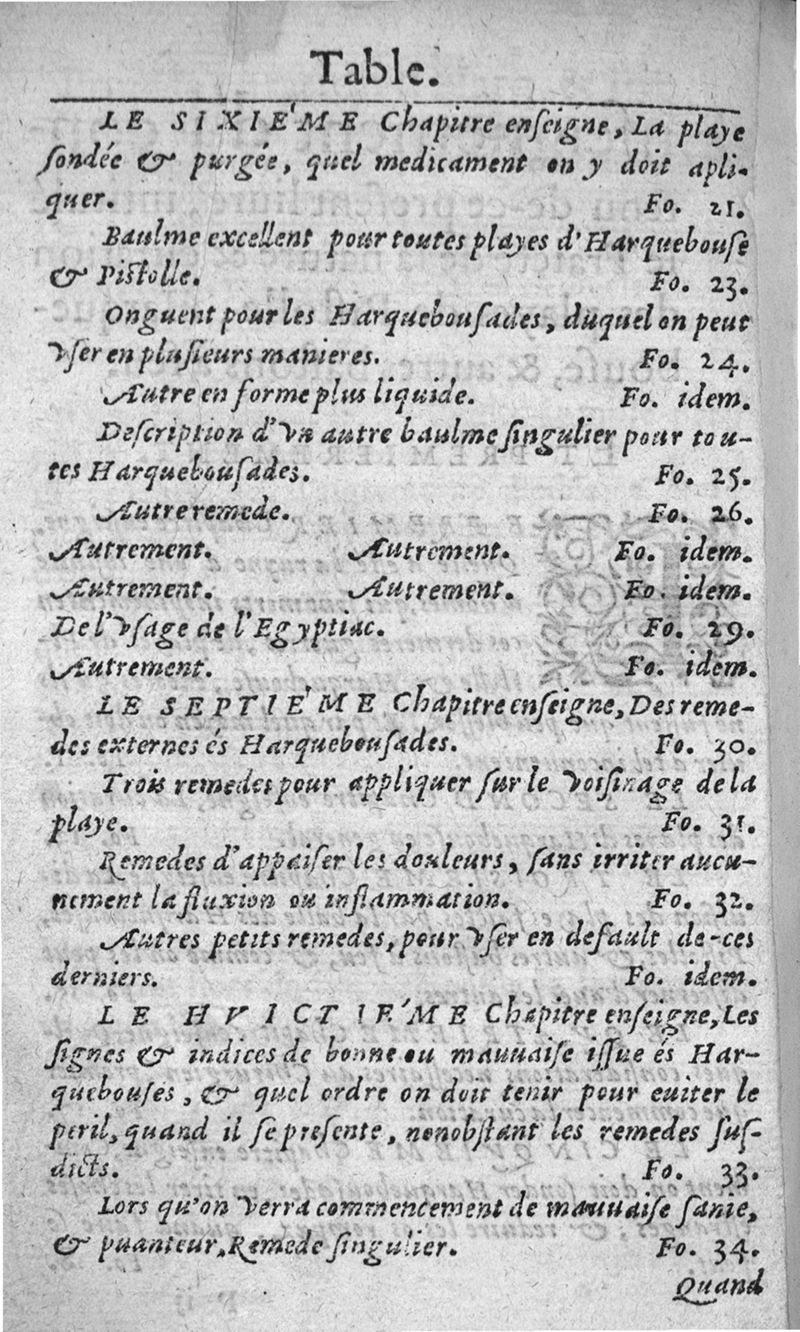 Table.
LE SIXIE'ME Chapitre enſeigne, La playe
ſondée & purgée, quel medicament on y doit apli-
quer. Fo. 21.
Baulme excellent pour toutes playes d'Harquebouſe
& Piſtolle. Fo. 23.
Onguent pour les Harquebouſades, duquel on peut
vſer en pluſieurs manieres. Fo. 24.
Autre en forme plus liquide. Fo. idem.
Deſcription d'vn autre baulme ſingulier pour tou-
tes Harquebouſades. Fo. 25.
Autre remede. Fo. 26.
Autrement. Autrement. Fo. idem.
Autrement. Autrement. Fo. idem.
De l'vſage de l'Egyptiac. Fo. 29.
Autrement. Fo. idem.
LE SEPTIE'ME Chapitre enſeigne, Des reme-
des externes és Harquebouſades. Fo. 30.
Trois remedes pour appliquer ſur le voiſinage de la
playe. Fo. 31.
Remedes d'appaiſer les douleurs, ſans irriter aucu-
nement la fluxion ou inflammation. Fo. 32.
Autres petits remedes, pour vſer en default de-ces
derniers. Fo. idem.
LE HVICTIE'ME Chapitre enſeigne, Les
ſignes & indices de bonne ou mauuaiſe iſſue és Har-
quebouſes, & quel ordre on doit tenir pour euiter le
peril, quand il ſe preſente, nonobſtant les remedes ſuſ-
dicts. Fo. 33.
Lors qu'on verra commencement de mauuaiſe ſanie,
& puanteur, Remede ſingulier. Fo. 34.
Quand